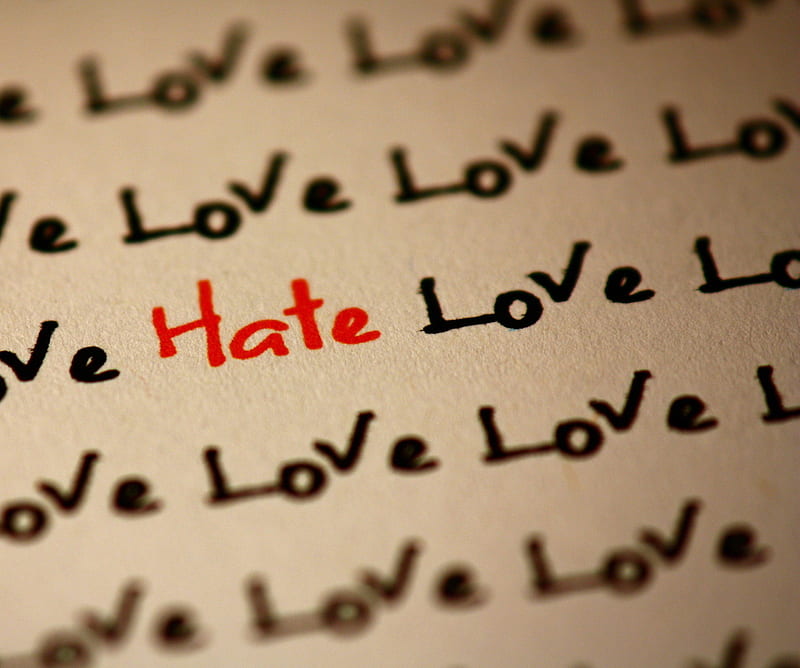 e Love Love Lov
ve Love Love Lov
ove Hate Love Lo
ove Love Love L
ove Love Love